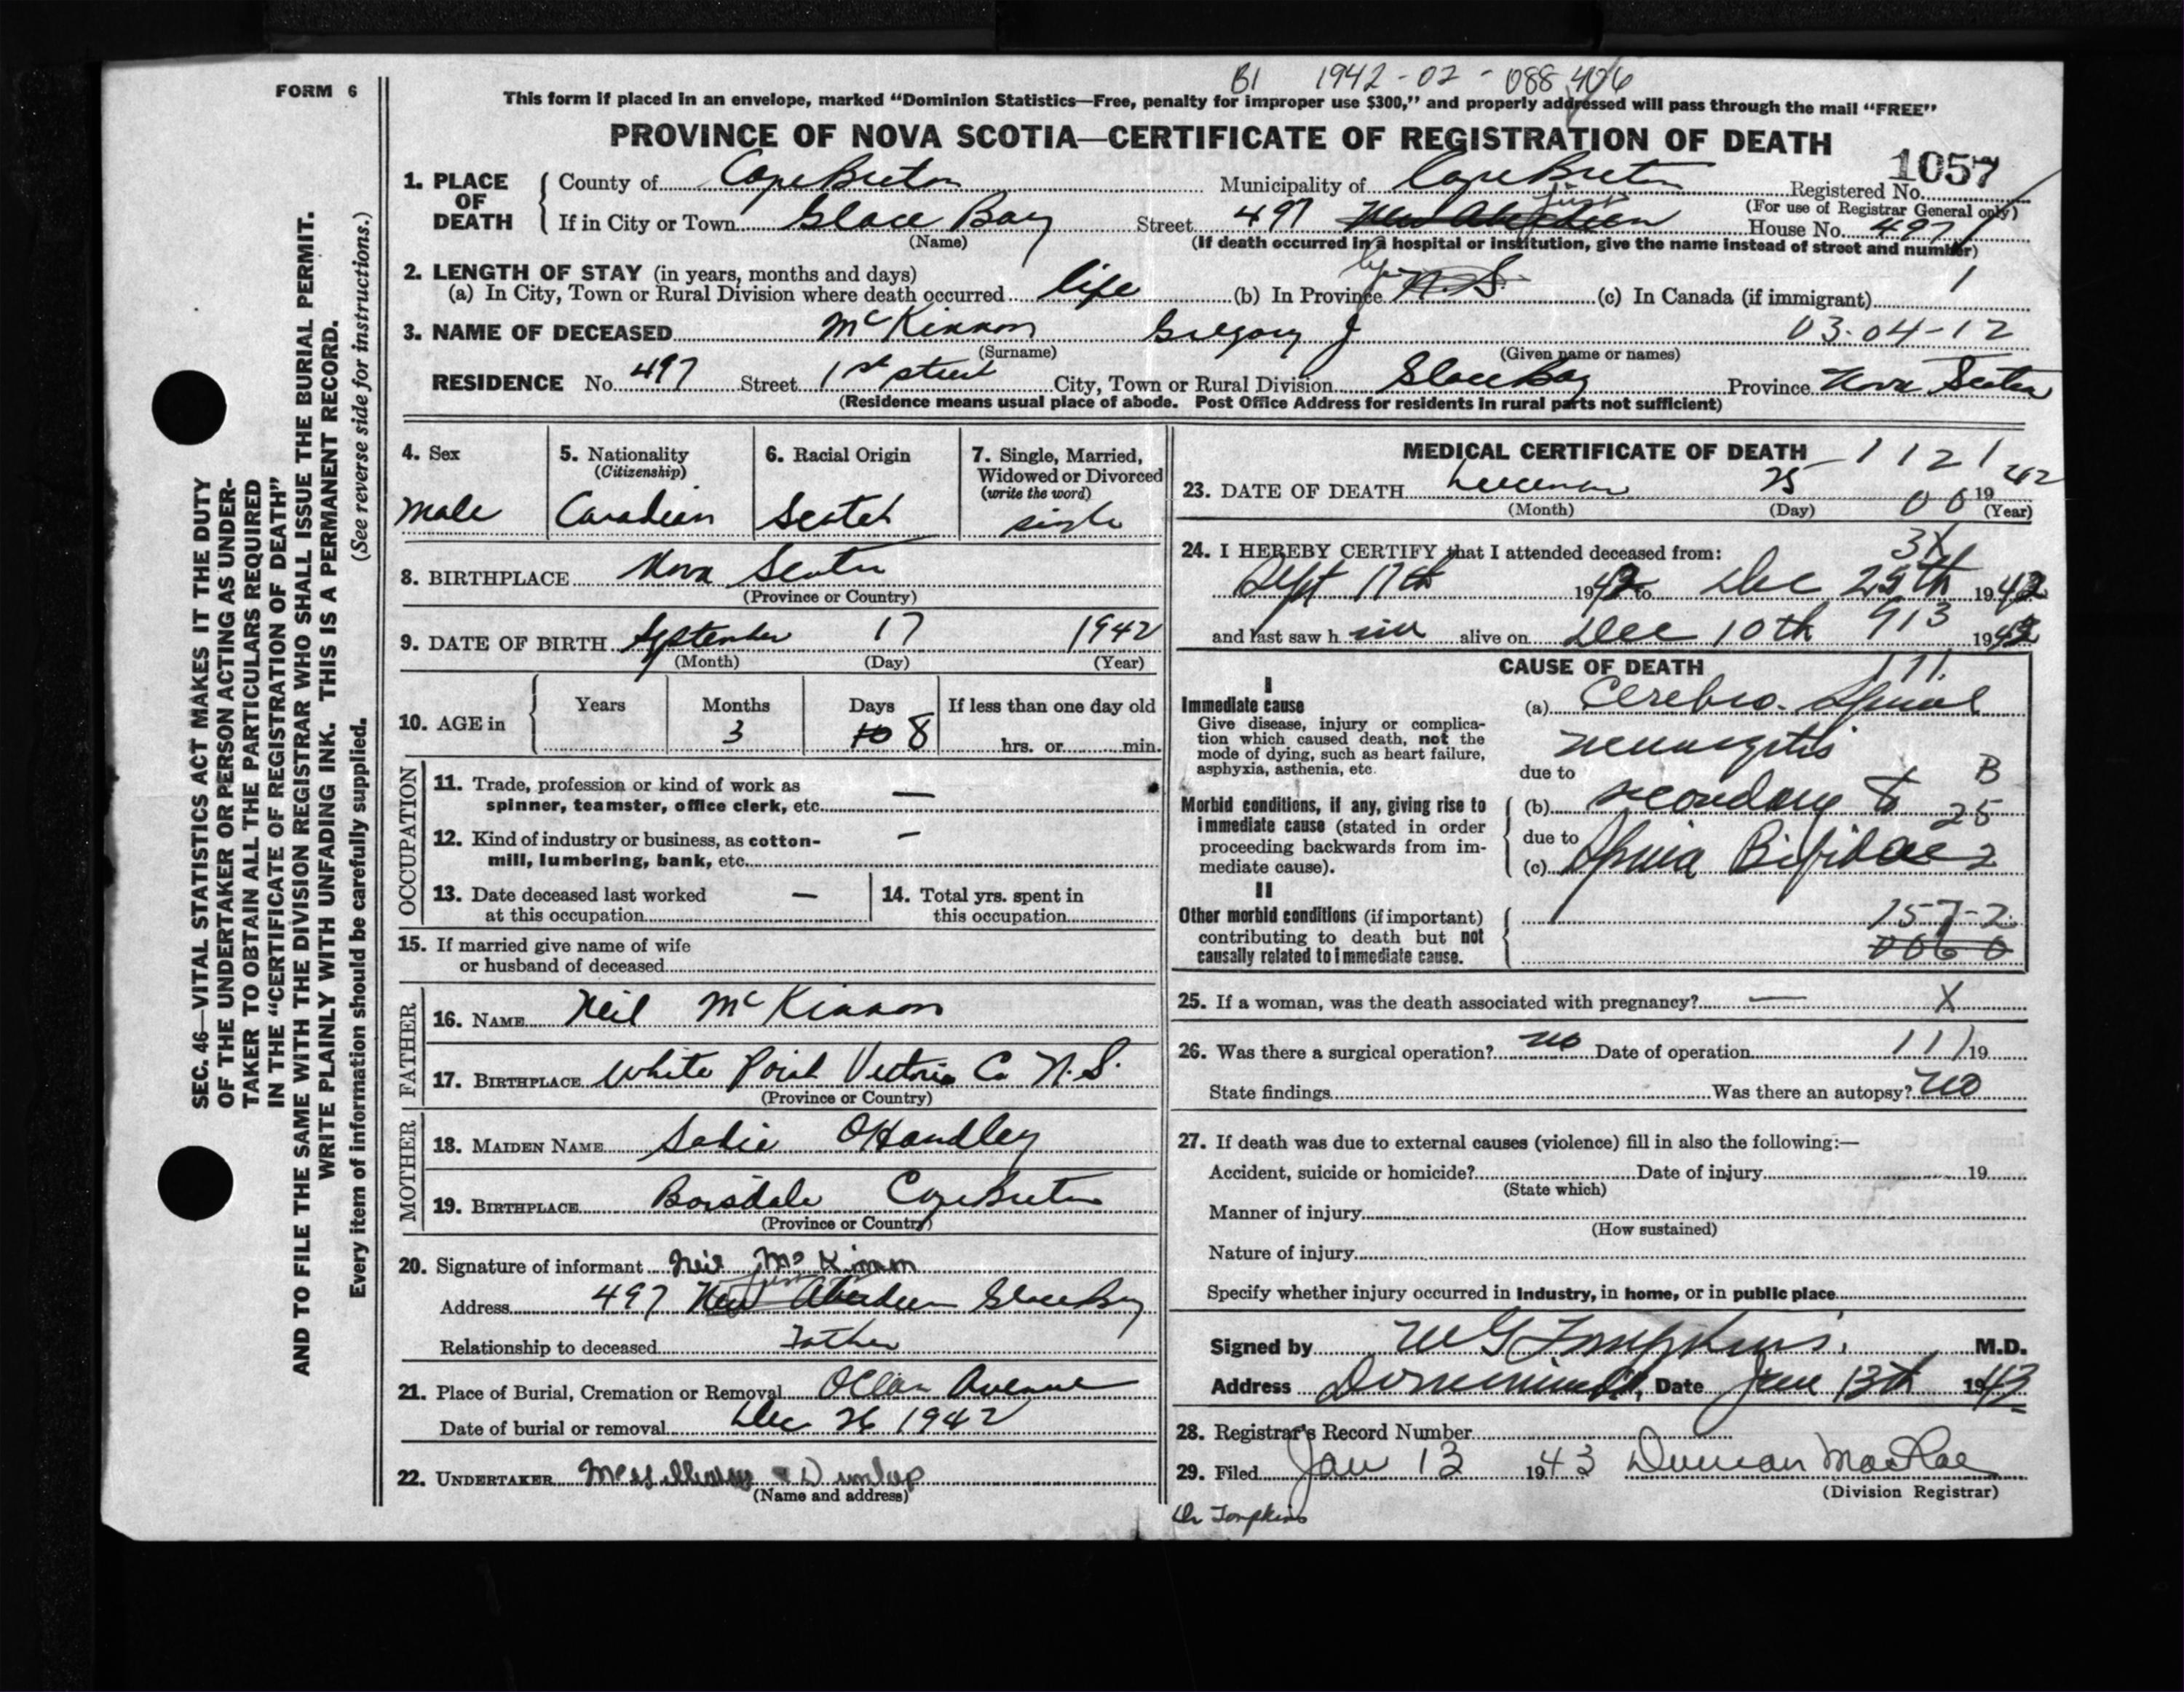 B1 1942-02-088406
FORM 6
This form if placed in an envelope, marked "Dominion Statistics—Free, penalty for improper use $300," and properly addressed will pass through the mail "FREE"
PROVINCE OF NOVA SCOTIA—CERTIFICATE OF REGISTRATION OF DEATH
1057
1. PLACE OF DEATH County of Cape Breton Municipality of Cape Breton Registered No.
(For use of Registrar General only)
If in City or Town Glace Bay Street 497 New Aberdeen First House No. 497
(Name) (If death occurred in a hospital or institution, give the name instead of street and number)
2. LENGTH OF STAY (in years, months and days)
(a) In City, Town or Rural Division where death occurred life (b) In Province N.S. life (c) In Canada (if immigrant) 1
3. NAME OF DECEASED McKinnon Gregory J 03-04-12
(Surname) (Given name or names)
RESIDENCE No. 497 Street 1st street City, Town or Rural Division Glace Bay Province Nova Scotia
(Residence means usual place of abode. Post Office Address for residents in rural parts not sufficient)
4. Sex
Male
5. Nationality
(Citizenship)
Canadian
6. Racial Origin
Scotch
7. Single, Married, Widowed or Divorced
(write the word)
single
8. BIRTHPLACE Nova Scotia
(Province or Country)
9. DATE OF BIRTH September 17 1942
(Month) (Day) (Year)
10. AGE in Years Months Days If less than one day old
3 10 8 hrs. or min.
OCCUPATION
11. Trade, profession or kind of work as
spinner, teamster, office clerk, etc. —
12. Kind of industry or business, as cotton-
mill, lumbering, bank, etc. –
13. Date deceased last worked
at this occupation —
14. Total yrs. spent in
this occupation
15. If married give name of wife
or husband of deceased
FATHER
16. NAME Neil McKinnon
17. BIRTHPLACE White Point Victoria Co N.S.
(Province or Country)
MOTHER
18. MAIDEN NAME Sadie OHandley
19. BIRTHPLACE Boisdale Cape Breton
(Province or Country)
20. Signature of informant Neil McKinnon
Address 497 New Aberdeen First Glace Bay
Relationship to deceased Father
21. Place of Burial, Cremation or Removal Ocean Avenue
Date of burial or removal Dec 26 1942
22. UNDERTAKER & Dunlap
(Name and address)
MEDICAL CERTIFICATE OF DEATH
1121
23. DATE OF DEATH December 25 00 1942
(Month) (Day) (Year)
24. I HEREBY CERTIFY that I attended deceased from: 3X
Sept 17th 1942 to Dec 25th 1942
and last saw him alive on Dec 10th 913 1942
CAUSE OF DEATH
111.
I
Immediate cause
Give disease, injury or complica-
tion which caused death, not the
mode of dying, such as heart failure,
asphyxia, asthenia, etc.
(a) Cerebro-Spinal
meningitis
due to B
Morbid conditions, if any, giving rise to
immediate cause (stated in order
proceeding backwards from im-
mediate cause).
(b) secondary to 25
due to
(c) Spina Bifida 2
II
Other morbid conditions (if important)
contributing to death but not
causally related to immediate cause.
157-2
0060
25. If a woman, was the death associated with pregnancy? — X
26. Was there a surgical operation? no Date of operation 111 19
State findings Was there an autopsy? no
27. If death was due to external causes (violence) fill in also the following:—
Accident, suicide or homicide? Date of injury 19
(State which)
Manner of injury
(How sustained)
Nature of injury
Specify whether injury occurred in Industry, in home, or in public place
Signed by W G Tompkins M.D.
Address Dominion Date Jan 13th 1943
28. Registrar's Record Number
29. Filed Jan 13 1943 Duncan MacRae
(Division Registrar)
Dr Tompkins
SEC. 46—VITAL STATISTICS ACT MAKES IT THE DUTY
OF THE UNDERTAKER OR PERSON ACTING AS UNDER-
TAKER TO OBTAIN ALL THE PARTICULARS REQUIRED
IN THE "CERTIFICATE OF REGISTRATION OF DEATH"
AND TO FILE THE SAME WITH THE DIVISION REGISTRAR WHO SHALL ISSUE THE BURIAL PERMIT.
WRITE PLAINLY WITH UNFADING INK. THIS IS A PERMANENT RECORD.
Every item of information should be carefully supplied. (See reverse side for instructions.)